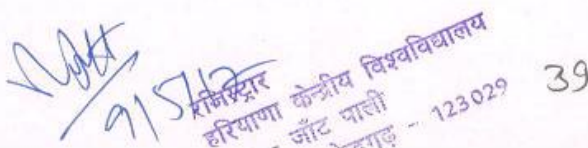 9/5/17
रजिस्ट्रार
हरियाणा केन्द्रीय विश्वविद्यालय
जाँट पाली
- 123029
39